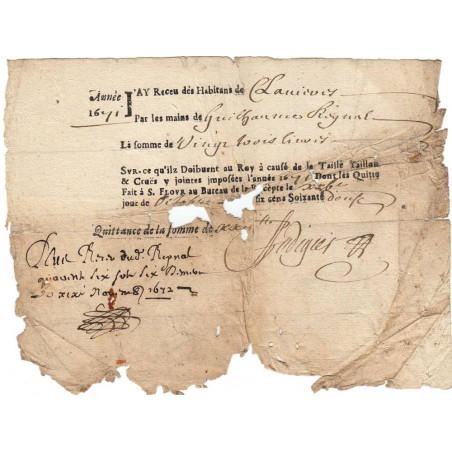 Année
1671
J'AY Receu dés Habitans de Clavieres
Par les mains de Guilhaumes Rognal
La somme de Vingt trois livres
Svr ce qu'ilz Doibuent au Roy à cause de la Taille Taillon
& Cruës y jointes imposées l'année 1671 Dont les Quitte
Fait à S. Flovr au Bureau de la Recepte le
jour de Octobre six cens Soixante douse
Quittance de la somme de xxiii
Plus Receu dud. Rognal
quarente six sols six deniers
Le xixe Novem 1672